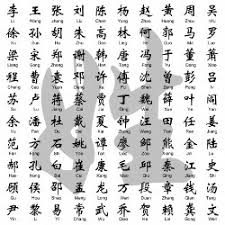 李 王 张 刘 陈 杨 赵 黄 周 吴
Li Wang Zhang Liu Chen Yang Zhao Huang Zhou Wu
徐 孙 胡 朱 高 林 何 郭 马 罗
Xu Sun Hu Zhu Gao Lin He Guo Ma Luo
梁 宋 郑 谢 韩 唐 冯 于 董 萧
Liang Song Zheng Xie Han Tang Feng Yu Dong Xiao
程 曹 袁 邓 许 傅 沈 曾 彭 吕
Cheng Cao Yuan Deng Xu Fu Shen Zeng Peng Lu
苏 卢 蒋 蔡 贾 丁 魏 薛 叶 阎
Su Lu Jiang Cai Jia Ding Wei Xue Ye Yan
余 潘 杜 戴 夏 钟 汪 田 任 姜
Yu Pan Du Dai Xia Zhong Wang Tian Ren Jiang
范 方 石 姚 谭 廖 邹 熊 金 陆
Fan Fang Shi Yao Tan Liao Zou Xiong Jin Lu
郝 孔 白 崔 康 毛 邱 秦 江 史
Hao Kong Bai Cui Kang Mao Qiu Qin Jiang Shi
顾 侯 邵 孟 龙 万 段 雷 钱 汤
Gu Hou Shao Meng Long Wan Duan Lei Qian Tang
尹 黎 易 常 武 乔 贺 赖 龚 文
Yin Li Yi Chang Wu Qiao He Lai Gong Wen
姓